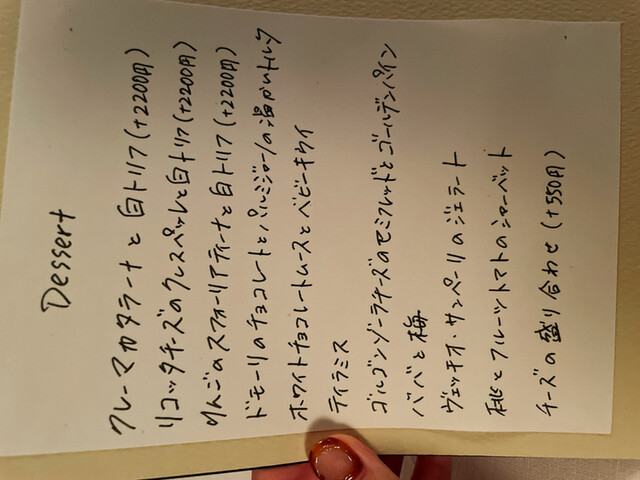 Dessert
クレーマカタラーナと白トリフ(+2200円)
リコッタチーズのクレスペッレと白トリフ(+2200円)
りんごのスフォーリアティーナと白トリフ(+2200円)
ドモーリのチョコレートとパルミジャーノの温かいトルタ
ホワイトチョコレートムースとベビーキウイ
ティラミス
ゴルゴンゾーラチーズのセミフレッドとゴールデンパイン
ババと梅
ヴェッキオ・サンペーリのジェラート
桃とフルーツトマトのシャーベット
チーズの盛り合わせ(+550円)